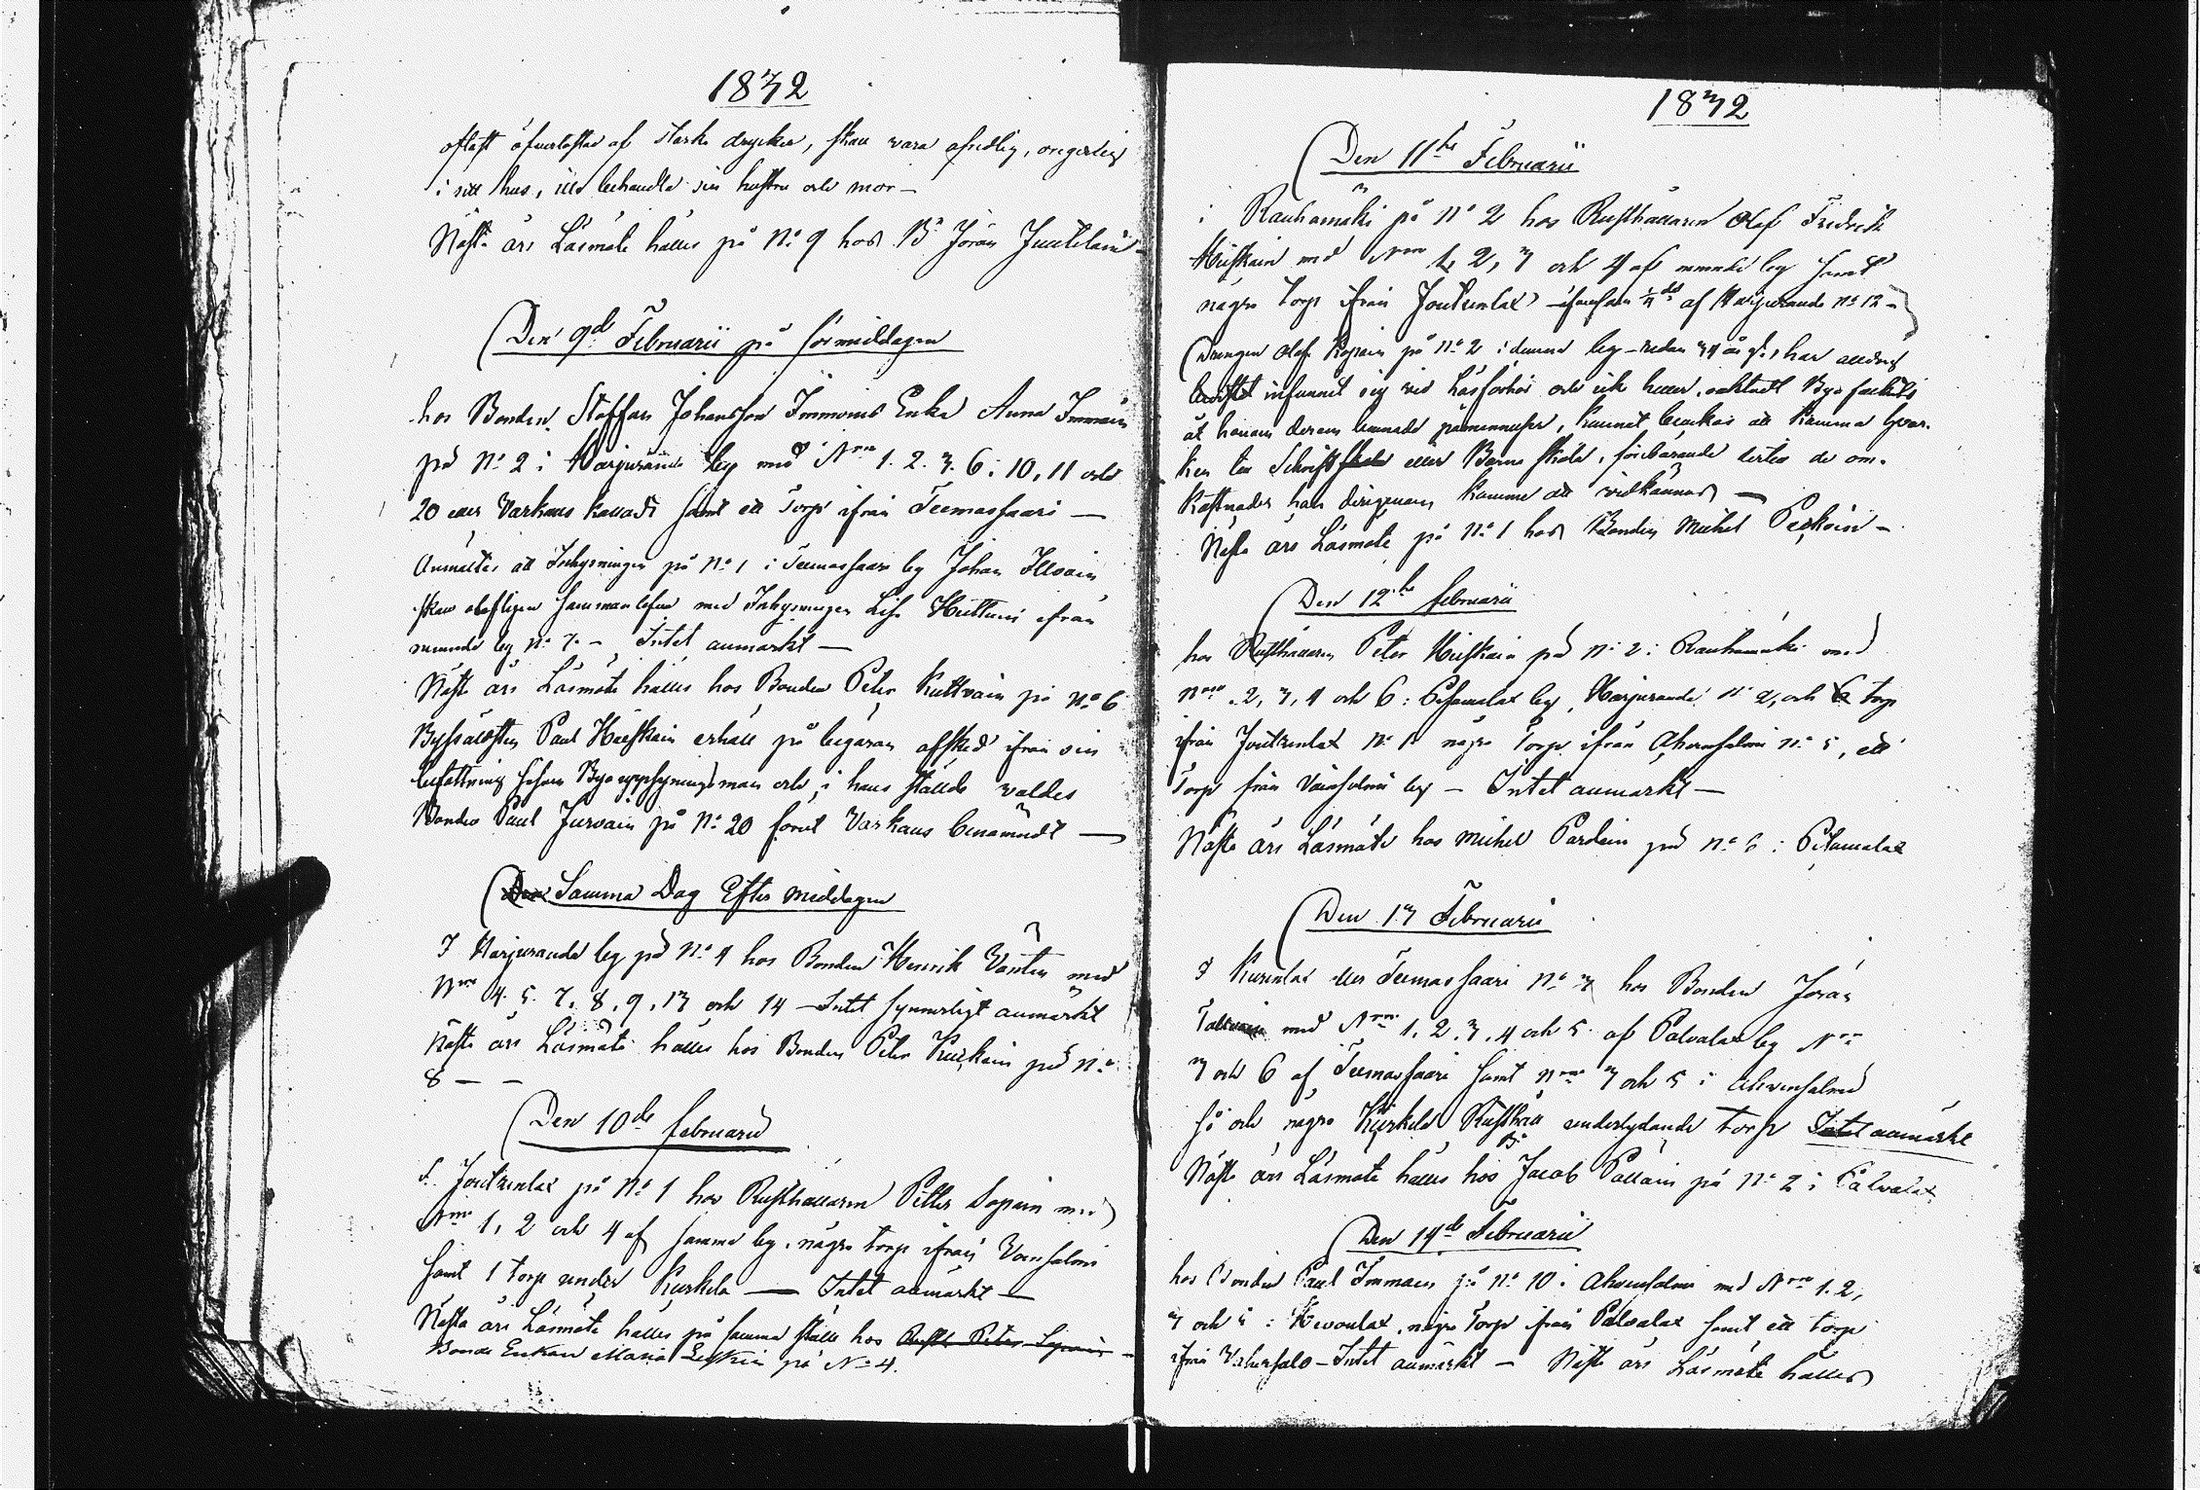 1832
oftast öfverlastad af starka drycker, skall vara ofredlig, oregerlig
i sitt hus, illa behandla sin hustru och mor —
Nästa års Läsmöte hålles på No 9 hos Bn Jöran Juutilain —
Den 9de Februarii på förmiddagen
hos Bonden Staffan Johansson Immoins Enka Anna Immoin
på No 2 i Harjuranda by med Nrne 1. 2. 3. 6. 10, 11 och
20 eller Varkaus kalladt samt ett Torp ifrån Teemassaari —
Anmältes att Inhysningen på No 1 i Teemassaari by Johan
skall olofligen sammanlefva med Inhysningen Lisa Huttuin ifrån
by No 7 — Intet anmärkt —
Nästa års Läsmöte hålles hos Bonden Peter Kuttvain på No 6
Paul Häiskain erhåll på begäran afsked ifrån sin
befattning såsom Bya uppsyningsman och i hans ställe valdes
Bonden Paul Jurvain på No 20 förut Varkaus benämndt —
Den Samma Dag Efter middagen
I Harjuranda by på No 4 hos Bonden Henrik Väntin med
Nrne 4. 5. 7. 8, 9, 13 och 14 — Intet synnerligt anmärkt
Nästa års Läsmöte hålles hos Bonden Peter Kurkain på No
8 — —
Den 10de februarii
I Joutzenlax på No 1 hos Rusthållaren Petter Sopain med
Nrne 1, 2 och 4 af samma by, några torp ifrån
samt 1 torp under Kurkela — Intet anmärkt —
Nästa års Läsmöte hålles på samma ställe hos Rusth. Peter Sopain —
Bonde Enkan Maria på No 4.
1832
Den 11te Februarii
i Rauhamäki på No 2 hos Rusthållaren Olof Fredrik
Häiskain med Nrne 1, 2, 3 och 4 af by samt
några torp ifrån Joutzenlax af Harjuranda No 12 —
Drängen Olof Kopain på No 2 i denna by — redan 34 år g., har aldrig
infunnit sig vid Läsförhör och ick heller, oaktadt Bya
åt honom derom lemnade påminnelser, kunnat bringas att komma hvar-
ken till Schriftskola eller Barna skola, förebärande dertill de om-
kostnader han derigenom komme att vidkännas —
Nästa års Läsmöte på No 1 hos Bonden Michel Peskoin —
Den 12te februarii
hos Rusthållaren Peter Häiskain på No 2 i Rauhamäki med
Nrne 2, 3, 4 och 6 i Pisamalax by, Harjuranda No 2, och torp
ifrån Joutzenlax No 1 några Torp ifrån Ahvensalmi No 5, ett
Torp från by — Intet anmärkt —
Nästa års Läsmöte hos Michel Pardain på No 6 i Pisamalax
Den 13 Februarii
I Kurenlax eller Teemassaari No 3 hos Bonden Jöran
med Nrne 1. 2. 3. 4 och 5 af Palvalax by Nrne
3 och 6 af Teemassaari samt Nrne 3 och 5 i Ahvensalmi
så och några Kurkela Rusthåll underlydande torp Intet anmärkt
Nästa års Läsmöte hålles hos Bn Jacob Pallain på No 2 i Palvalax
Den 14de Februarii
hos Bonden Paul Immoin på No 10 i Ahvensalmi med Nrne 1. 2,
3 och 5 i, några Torp ifrån Palvalax samt ett torp
ifrån — Intet anmärkt — Nästa års Läsmöte hålles